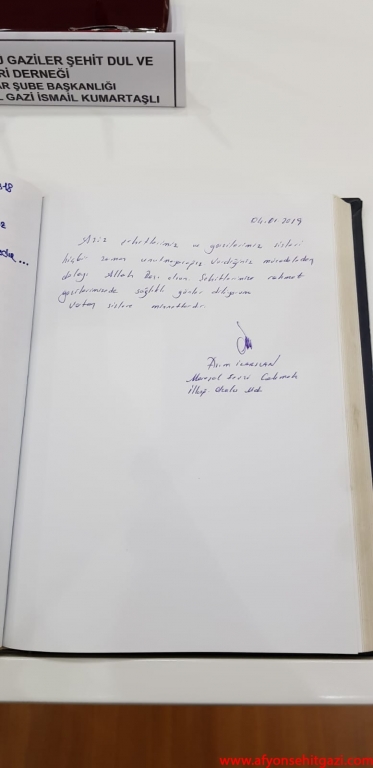 U GAZİLER ŞEHİT DUL VE
Rİ DERNEĞİ
AR ŞUBE BAŞKANLIĞI
L GAZİ İSMAİL KUMARTAŞLI
04.01.2019
Aziz şehitlerimiz ve gazilerimiz sizleri
hiçbir zaman unutmayacağız verdiğiniz mücadeleden
dolayı Allah Razı olsun Şehitlerimize rahmet
gazilerimizede sağlıklı günler diliyorum
Vatan sizlere minnettardır.
Asım
Mareşal Fevzi Çakmak
İlk Okulu Müd.
www.afyonsehitgazi.com